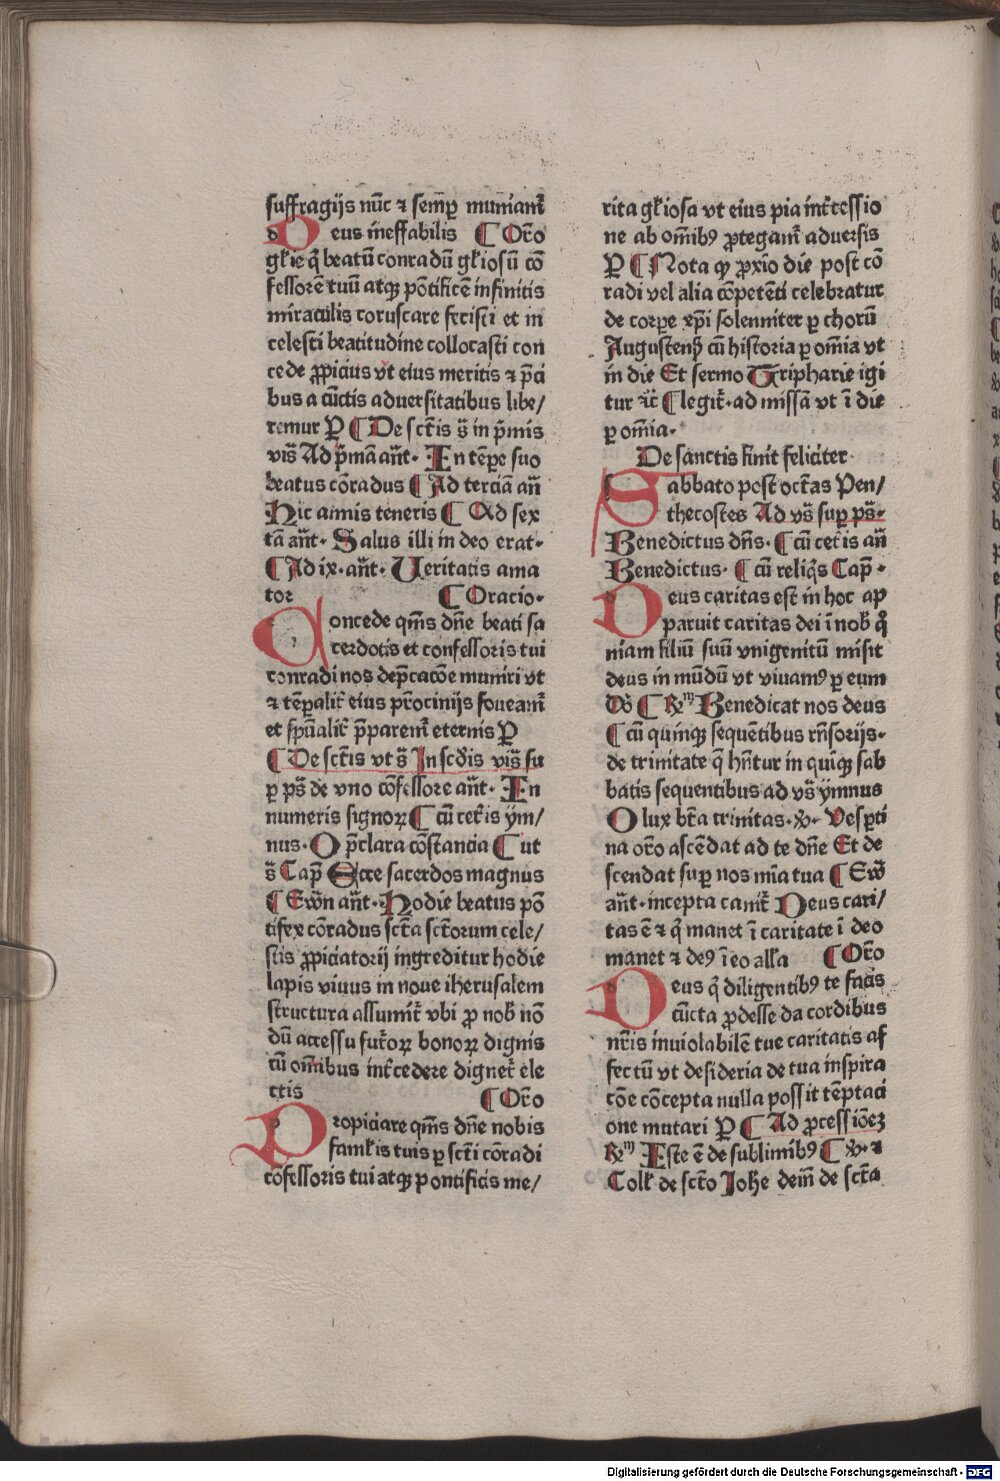 suffragijs nūc ⁊ semꝑ muniant᷑
Deus ineffabilis ¶ Or̄o
gl̄ie q̄ beatū conradū gl̄iosū cō
fessorē tuū atqꝫ pōtificē infinitis
miraculis coruscare fecisti et in
celesti beatitudine collocasti con
cede ꝓpicius vt eius meritis ⁊ p̄ci
bus a cūctis aduersitatibus libe/
remur P̲ ¶ De sct̄is s̄ in p̄mis
vis̄ Ad p̄mā an̄t· In tēpe suo
beatus cōradus ¶ Ad terciā an̄
Hic annis teneris ¶ Ad sex
tā an̄t· Salus illi in deo erat·
¶ Ad ix·an̄t· Ueritatis ama
tor ¶ Oracio·
Concede qm̄s dn̄e beati sa
cerdotis et confessoris tui
conradi nos dep̄cacōe muniri vt
⁊ tēꝑalit᷑ eius p̄rocinijs foueam᷑
et sp̄ualit᷑ p̄parem᷑ eternis P̲
¶ De sct̄is vt s̄ In scd̄is vis̄ su
ꝑ ps̄ de vno cōfessore an̄t· In
numeris signoꝝ ¶ cū cet᷑is ym/
nus· O p̄clara cōstancia ¶ ut
s̄ Cap̄ Ecce sacerdos magnus
¶ Ew̄n an̄t· Hodie beatus pō
tifex cōradus sct̄a sct̄orum cele/
stis ꝓpiciatorij ingreditur hodie
lapis viuus in noue iherusalem
structura assumit᷑ vbi ꝓ nob̄ nō
dū accessu fut᷑oꝝ bonoꝝ dignis
cū om̄ibus int᷑cedere dignet᷑ ele
ctis ¶ Or̄o
Propiciare qm̄s dn̄e nobis
famlīs tuis ꝑ sct̄i cōradi
cōfessoris tui atqꝫ pontificis me/
rita gl̄iosa vt eius pia int᷑cessio
ne ab om̄ibꝰ ꝓtegam᷑ aduersis
P̲ ¶ Nota ꝙ ꝓxīo die post cō
radi vel alia cōpetēti celebratur
de corꝑe xp̄i solenniter ꝑ chorū
Augusten̄ cū historia ꝑ om̄ia vt
in die Et sermo Gripharie igi
tur ⁊c̄ ¶ legit᷑·ad missā vt ī die
ꝑ omīa·
De sanctis finit feliciter·
Sabbato post octas Pen/
thecostes Ad vs̄ suꝑ ps̄·
Benedictus dn̄s· ¶ cū cet᷑is an̄
Benedictus· ¶ cū reliq̄s Cap̄·
Deus caritas est in hoc ap
paruit caritas dei ī nob̄ q̄
niam filiū suū vnigenitū misit
deus in mūdū vt viuamꝰ ꝑ eum
Dō ¶ R᷑m Benedicat nos deus
¶ cū quinqꝫ sequētibus rn̄sorijs·
de trinitate q̄ hn̄tur in quīqꝫ sab
batis sequentibus ad vs̄ ymnus
O lux bt̄a trinitas·⁊c· Vesꝑti
na or̄o ascēdat ad te dn̄e Et de
scendat suꝑ nos mīa tua ¶ Ew̄
an̄t·incepta canit᷑ Deus cari/
tas ē ⁊ q̄ manet ī caritate ī deo
manet ⁊ deꝰ ī eo all̄a ¶ Or̄o
Deus q̄ diligentibꝰ te facis
cūcta ꝓdesse da cordibus
nr̄is inuiolabilē tue caritatis af
fectū vt desideria de tua inspira
cōe cōcepta nulla possit tēptaci
one mutari P̲ ¶ Ad ꝓcessiōeꝫ
R᷑m Iste ē de sublimibꝰ ¶ ⁊c·⁊
Coll̄ de sct̄o Johe dein̄ de sct̄a
Digitalisierung gefördert durch die Deutsche Forschungsgemeinschaft - DFG